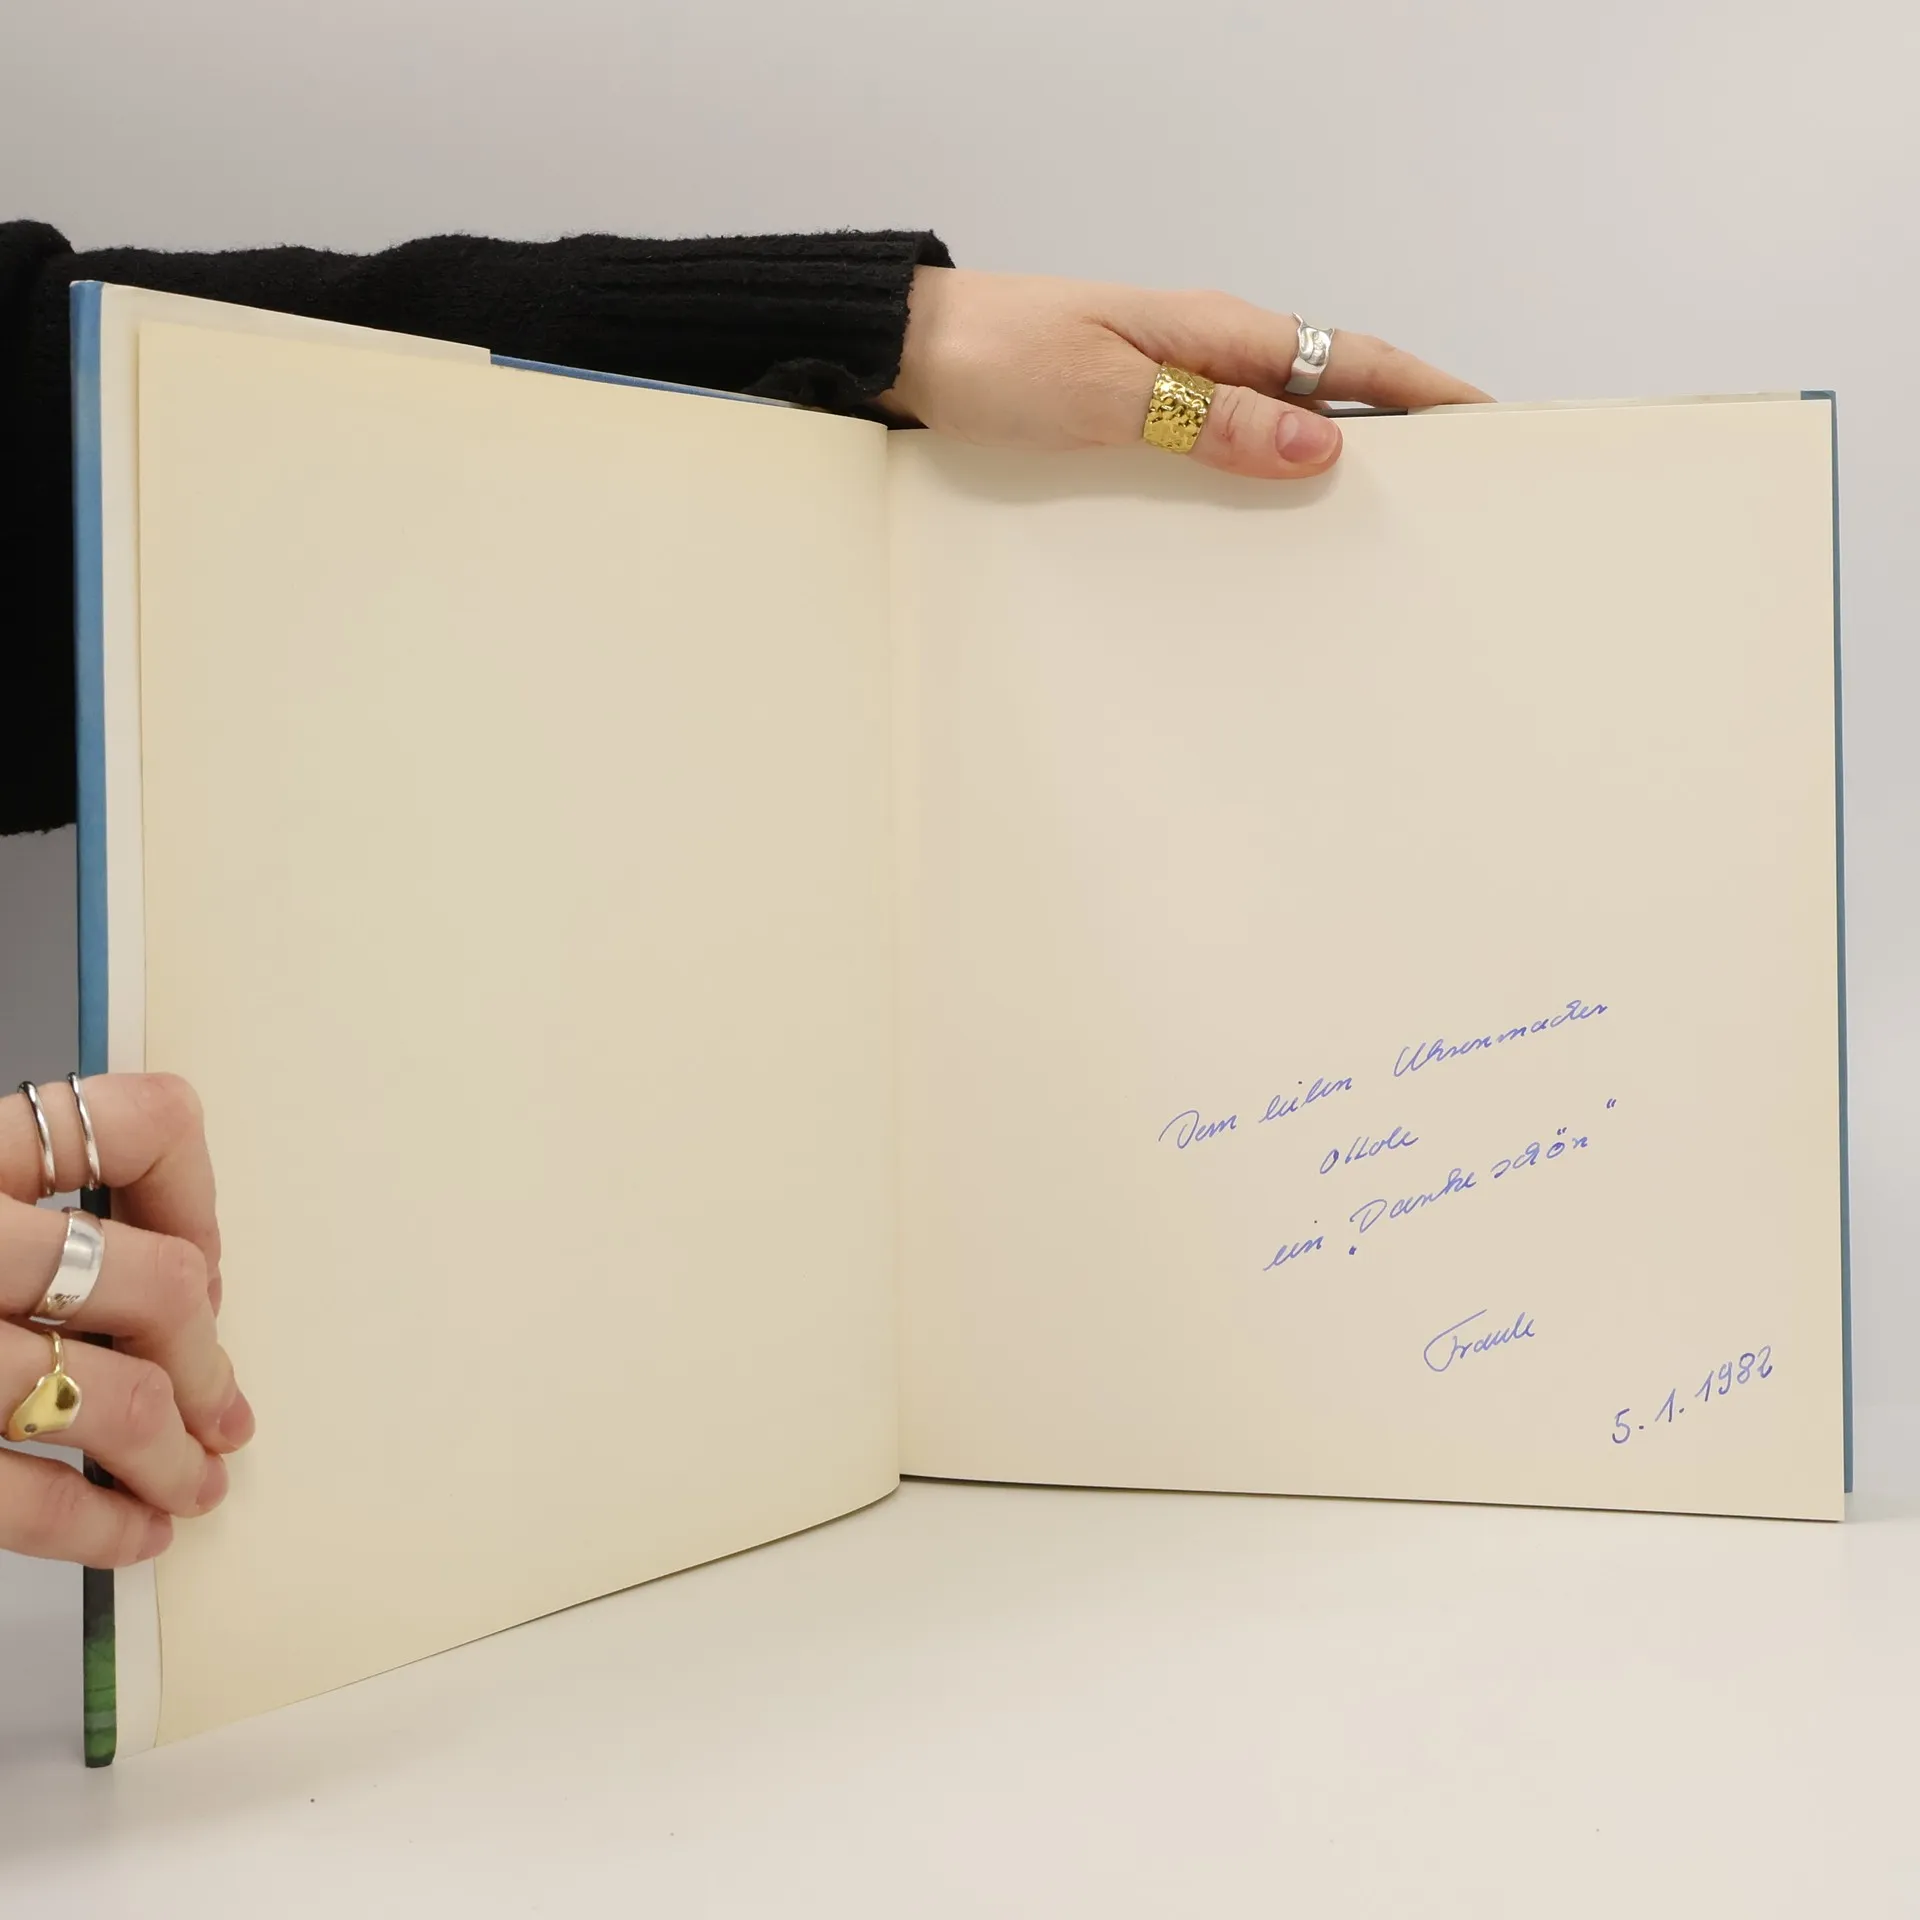 Dem lieben Uhrenmacher
Ottole
ein „Dankeschön“
Frauke
5.1.1982